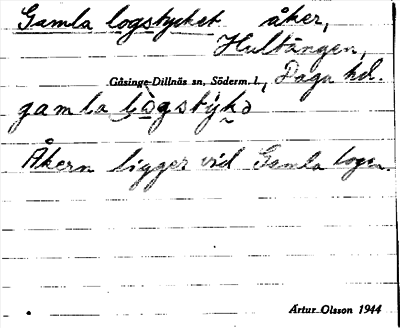 Gamla logstycket åker,
Hultängen,
Gåsinge-Dillnäs sn, Söderm. l., Daga hd.
gamla lògstykə
Åkern ligger vid Gamla logen.
Artur Olsson 1944